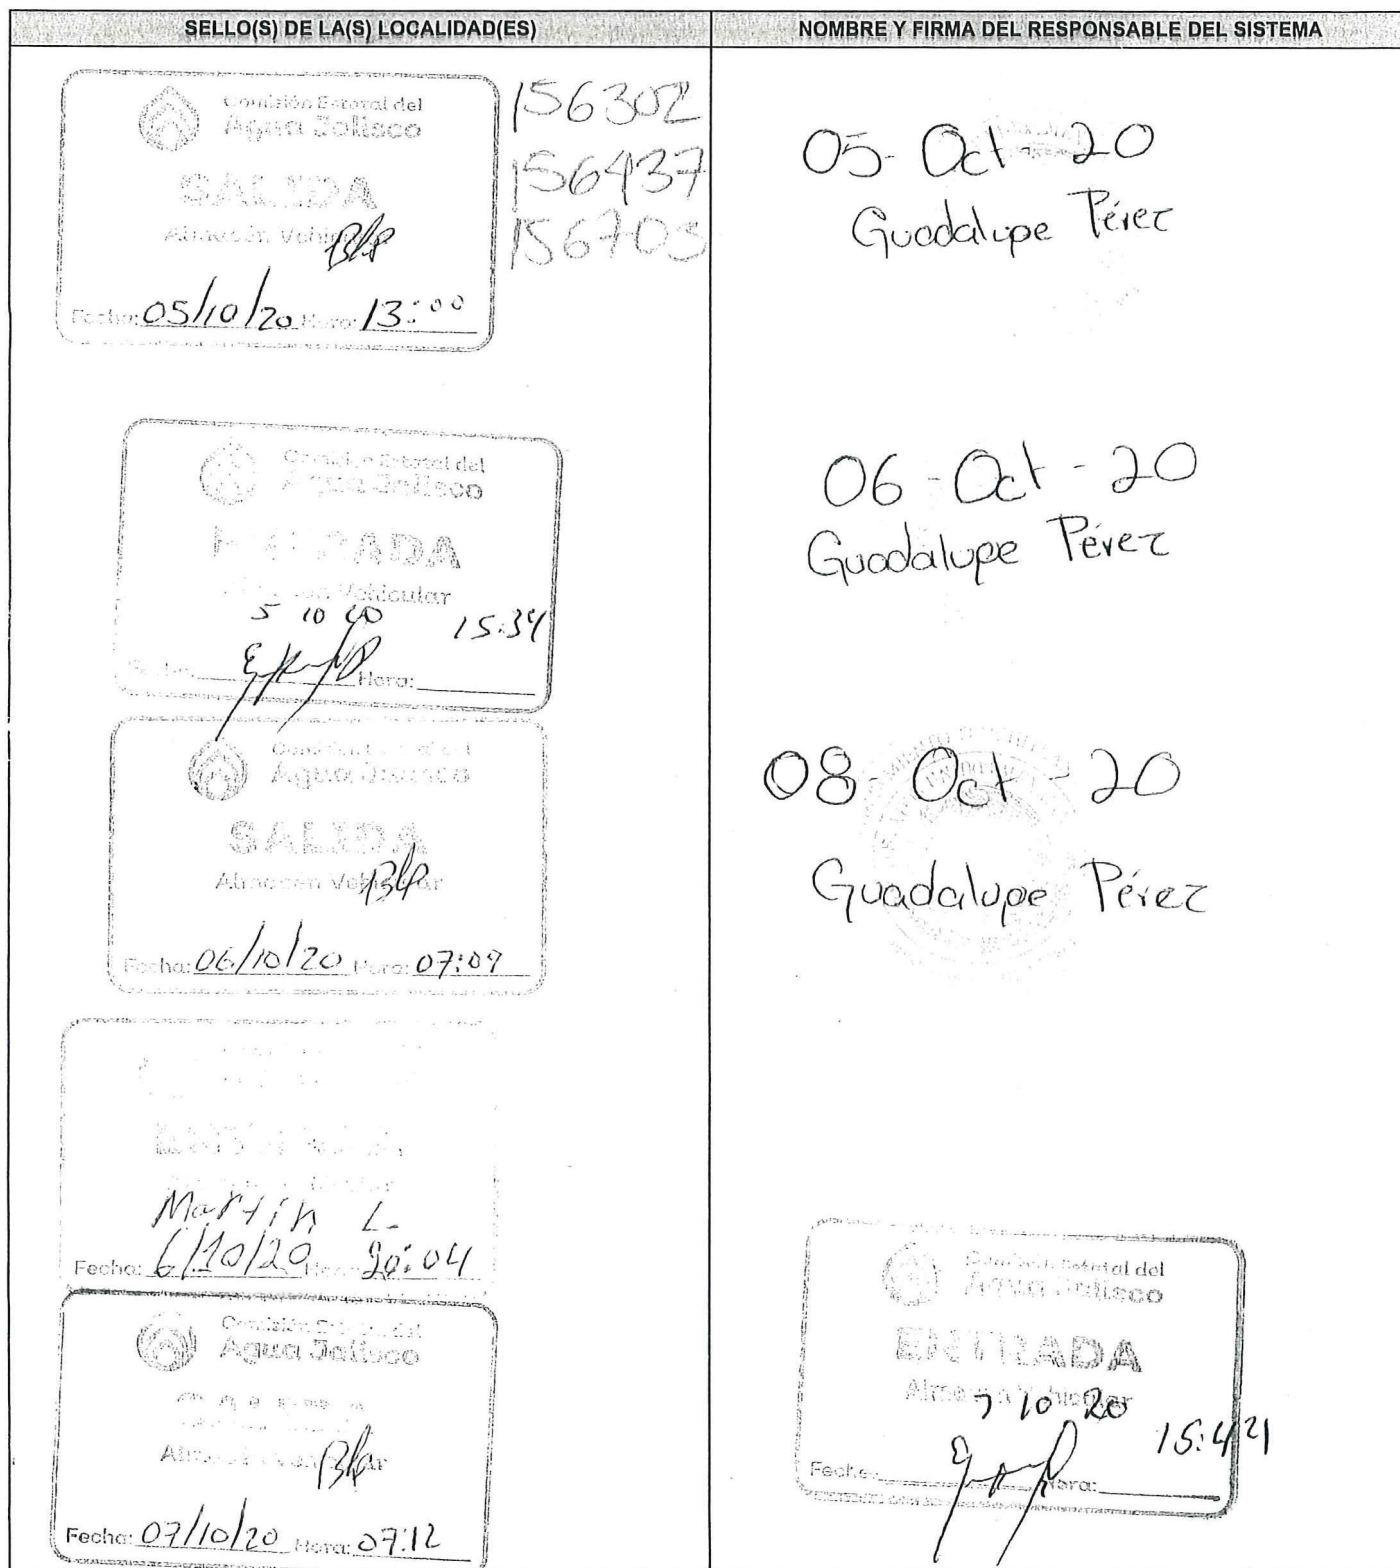 SELLO(S) DE LA(S) LOCALIDAD(ES)
Comisión Estatal del
Agua Jalisco
SALIDA
Almacén Vehicular
Fecha: 05/10/20 Hora: 13:00
156302
156437
156703
Comisión Estatal del
Agua Jalisco
ENTRADA
Almacén Vehicular
5 10 20 15:34
Fecha: Hora:
Comisión Estatal del
Agua Jalisco
SALIDA
Almacén Vehicular
Fecha: 06/10/20 Hora: 07:09
Martín L.
Fecha: 6/10/20 Hora: 20:04
Comisión Estatal del
Agua Jalisco
Almacén Vehicular
Fecha: 07/10/20 Hora: 07:12
NOMBRE Y FIRMA DEL RESPONSABLE DEL SISTEMA
05-Oct-20
Guadalupe Pérez
06-Oct-20
Guadalupe Pérez
08-Oct-20
Guadalupe Pérez
Comisión Estatal del
Agua Jalisco
ENTRADA
Almacén Vehicular
7 10 20
Fecha: Hora: